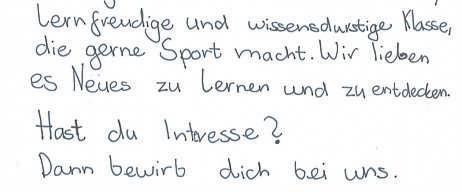 Lernfreudige und wissensdurstige Klasse,
die gerne Sport macht. Wir lieben
es Neues zu Lernen und zu entdecken.
Hast du Interesse?
Dann bewirb dich bei uns.